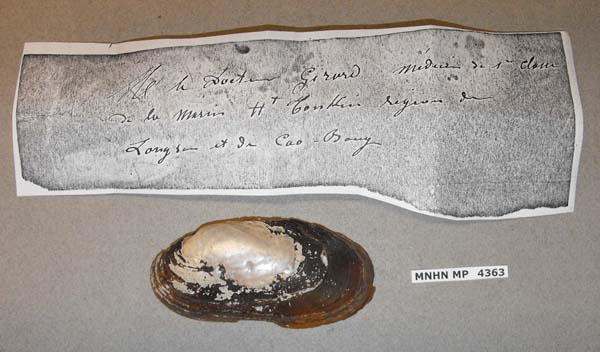 Mr le Docteur Girard médecin de 1re classe
de la Marine Ht Tonkin région de
Langson et de Cao-Bang
MNHN MP 4363